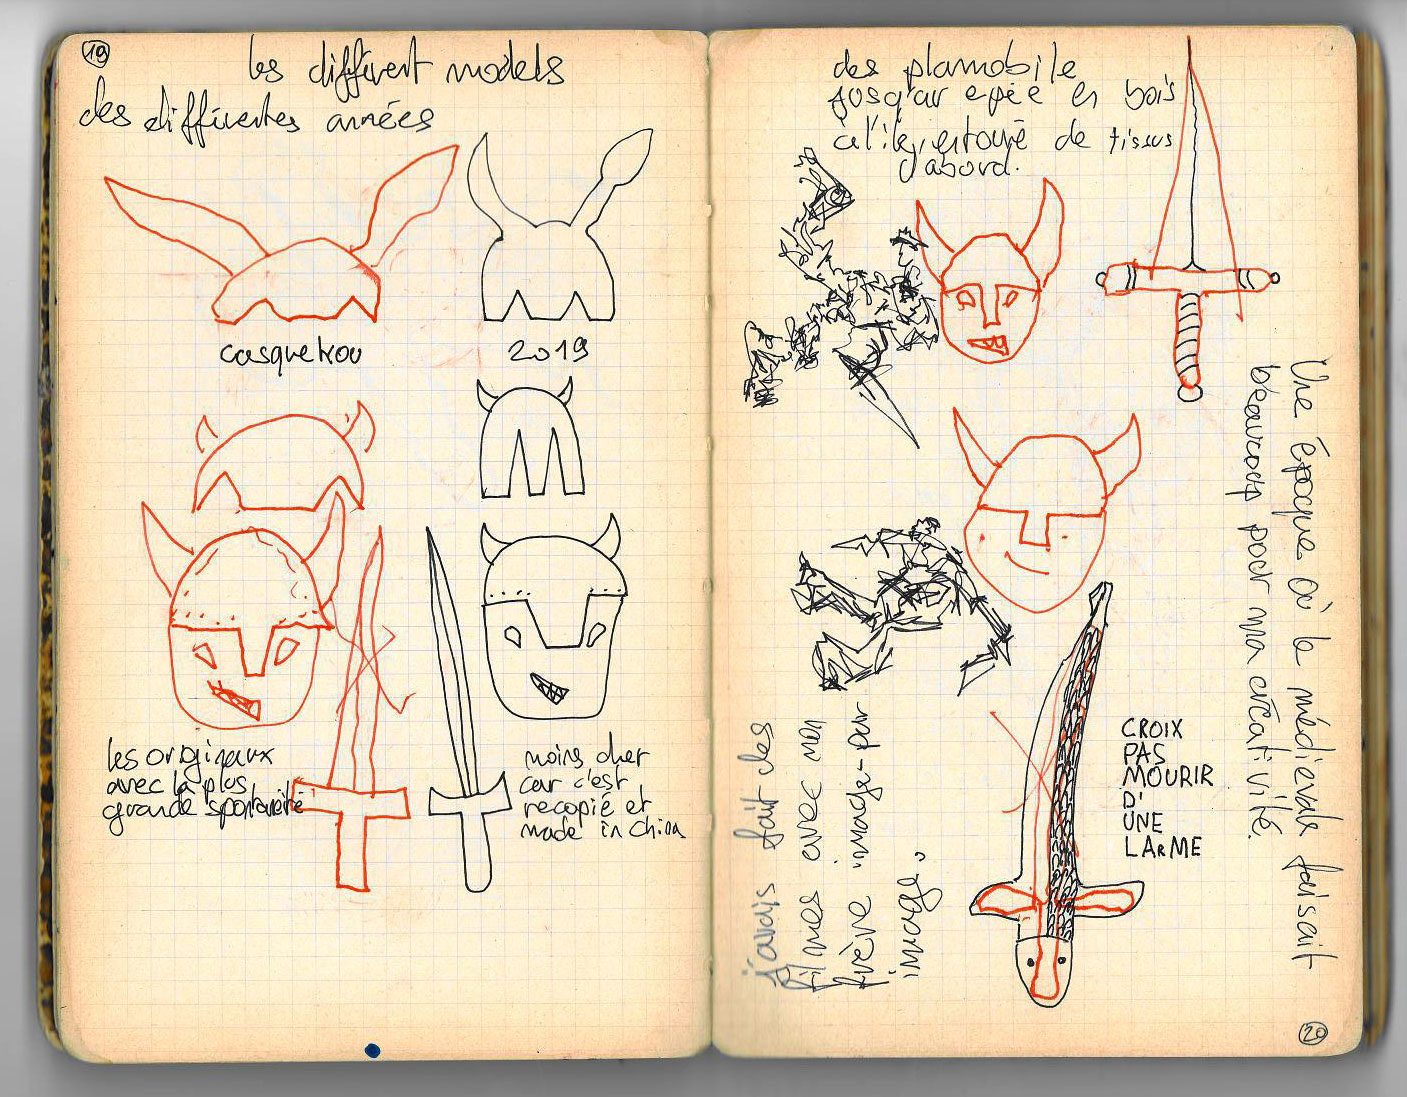 19
les différent models
des différentes années
casquetrou
2019
les originaux
avec la plus
grande spontanéité
moins cher
car c'est
recopié et
made in China
des plamobile
jusqu'au epée en bois
entouré de tissus
d'abord.
Une Époque où le médievale faisait
beaucoup pour ma créativité.
CROIX
PAS
MOURIR
D'
UNE
LARME
j'avais fait des
films avec mon
frère image-par
image.
20